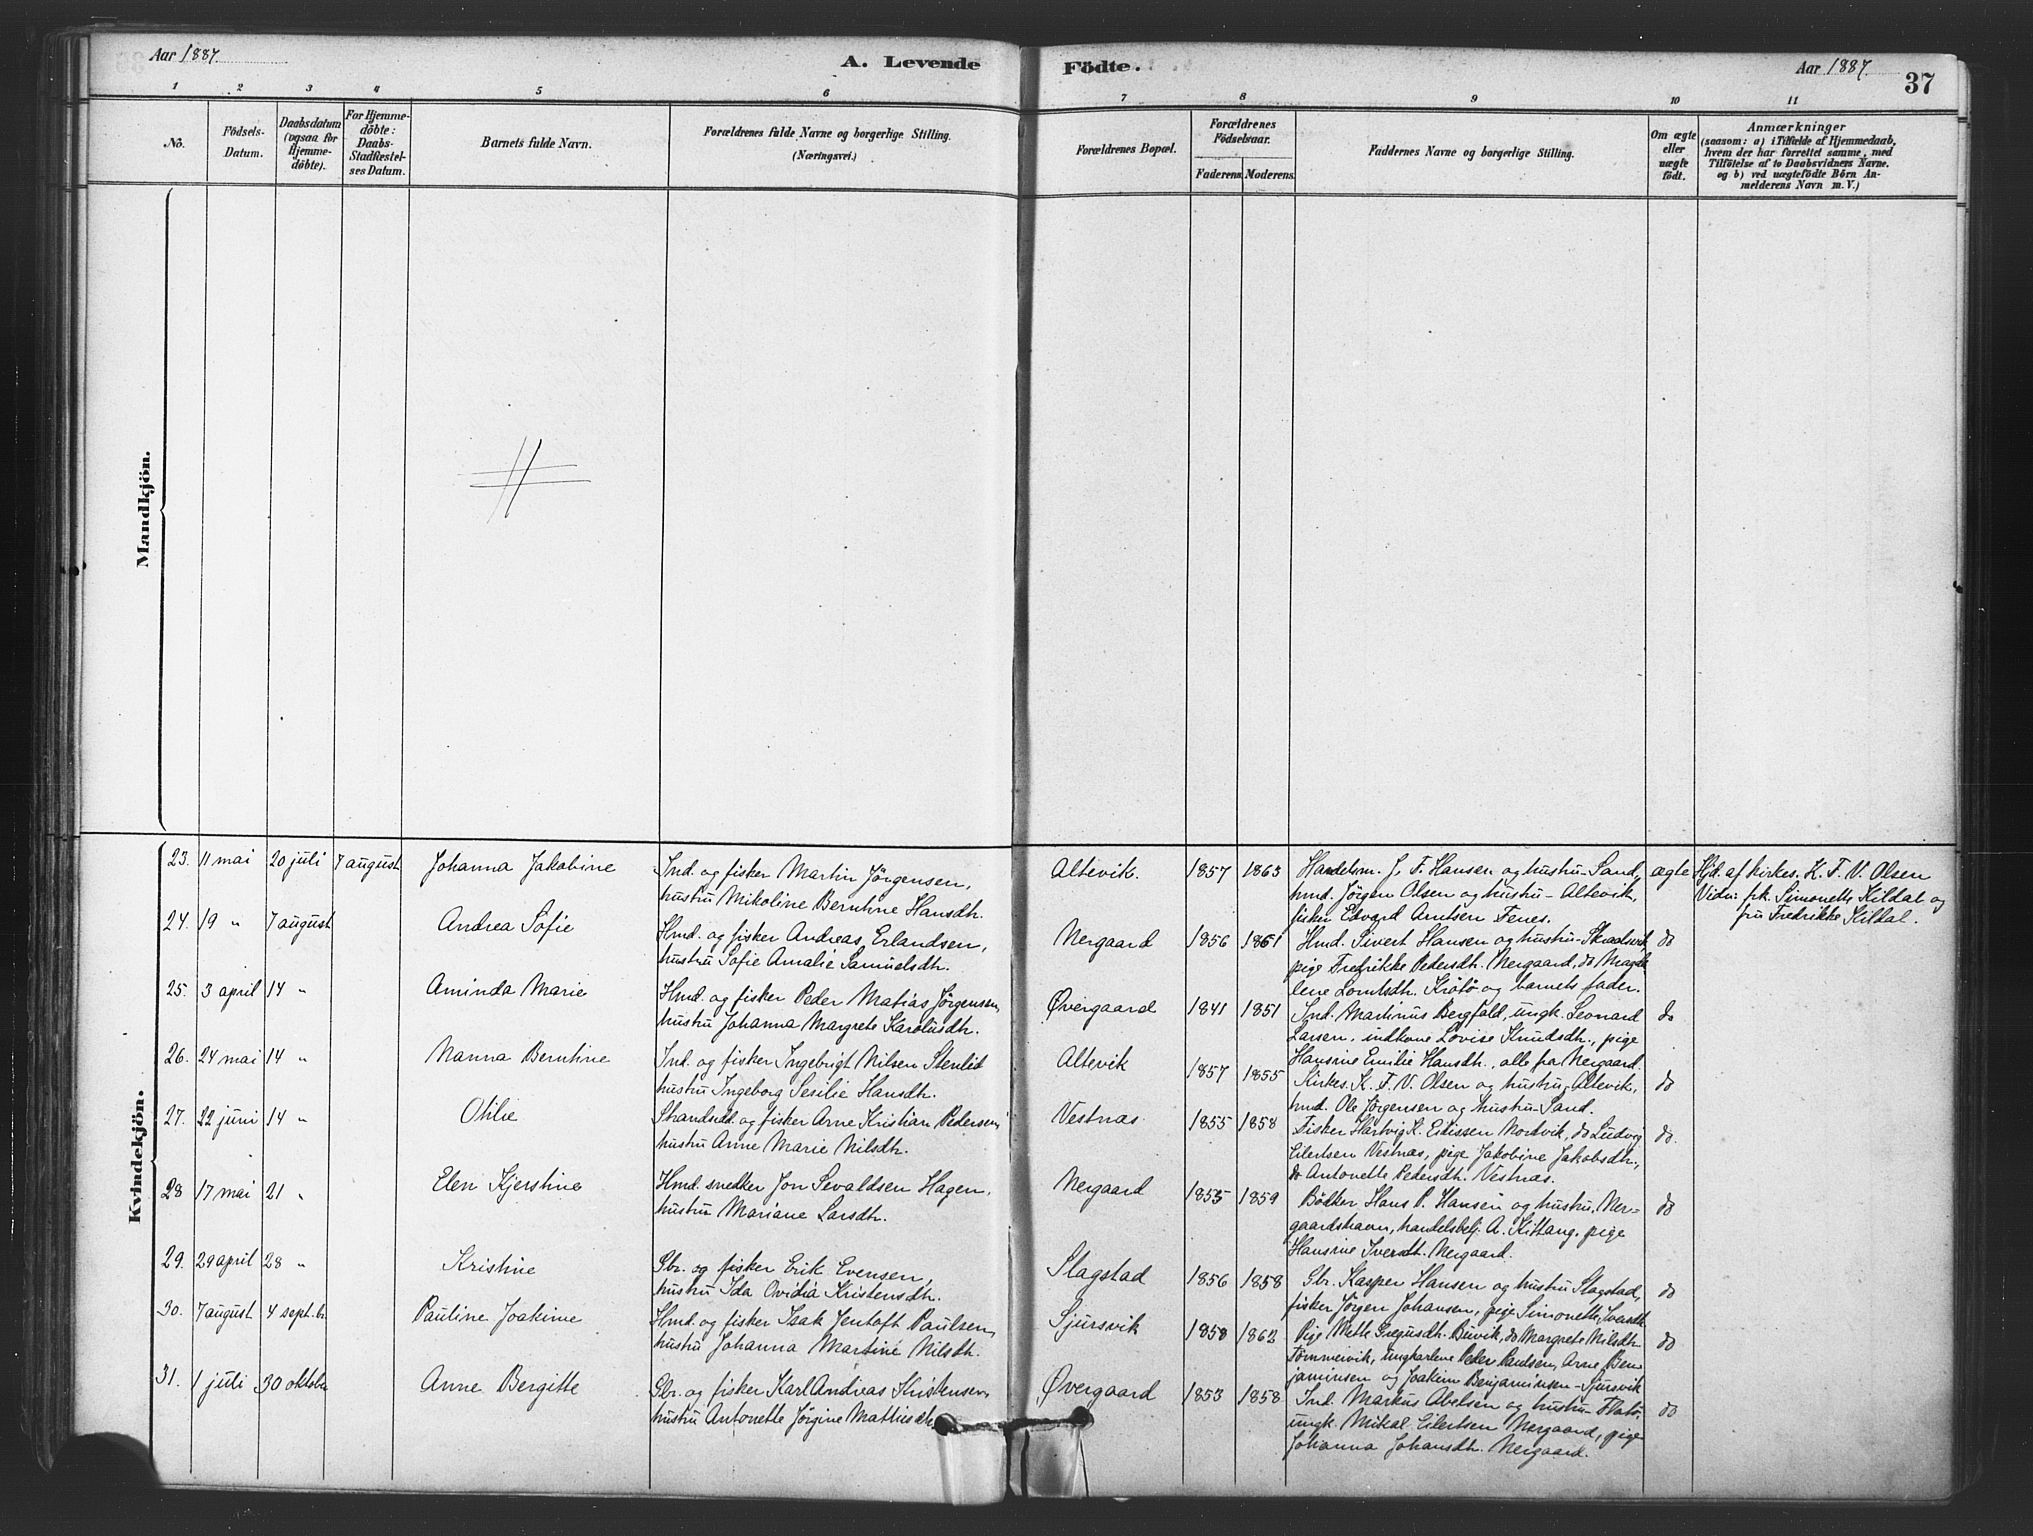 Aar 1887.
A. Levende Födte.
Aar 1887.
37
1 2 3 4 5 6 7 8 9 10 11
No.
Födsels-
Datum.
Daabsdatum
(ogsaa for
Hjemme-
döbte).
For Hjemme-
döbte:
Daabs-
Stadfæstel-
ses Datum.
Barnets fulde Navn.
Forældrenes fulde Navne og borgerlige Stilling.
(Næringsvei.)
Forældrenes Bopæl.
Forældrenes
Födselsaar.
Faderens. Moderens.
Faddernes Navne og borgerlige Stilling.
Om ægte
eller
uægte
födt.
Anmærkninger
(saasom: a) i Tilfælde af Hjemmedaab,
hvem der har forrettet samme, med
Tilföielse af to Daabsvidners Navne.
og b) ved uægtefödte Börn An-
melderens Navn m. V.)
Mandkjön.
Kvindekjön.
23. 11 mai 20 juli 7 august Johanna Jakobine
Ind. og fisker Martin Jørgensen,
hustru Mikoline Bernhine Hansdtr.
Altevik. 1857 1863
Handelsm. J. F. Hansen og hustru - Sand,
hmd. Jörgen Olsen og hustru - Altevik,
fisker Edvard Arntsen Fenes.
ægte
Hjd. af kirkes. K. F. V. Olsen
Vidn: frk. Simonette Kildal og
fru Fredrikke Kildal.
24. 19 " 7 august Andrea Sofie
Hmd. og fisker Andreas Erlandsen,
hustru Sofie Amalie Samuelsdtr.
Nergaard 1856 1861
Hmd. Sivert Hansen og hustru - Skaalsvik,
pige Fredrikke Pedersdtr. Nergaard, do Magda
lene Lorntsdtr. Krötö og barnets fader.
do
25. 3 april 14 " Aminda Marie
Hmd. og fisker Peder Matias Jørgensen,
hustru Johanna Margrete Karolusdtr.
Øvergaard 1841 1851
Ind. Martinus Bergfald, ungk. Leonard
Larsen, indkone Lovise Knudsdtr., pige
Hansine Emilie Hansdtr., alle fra Nergaard.
do
26. 24 mai 14 " Nanna Bernhine
Ind. og fisker Ingebrigt Nilsen Stenlid
hustru Ingeborg Sesilie Hansdtr.
Altevik 1857 1855
Kirkes. K. F. V. Olsen og hustru - Altevik,
hmd. Ole Jørgensen og hustru - Sand.
do
27. 22 juni 14 " Otilie
Strandsidd. og fisker Arne Kristian Pedersen,
hustru Anne Marie Nilsdtr.
Vestnas 1855 1858
Fisker Hartvig K. Edissen Nordvik, do Ludvig
Eilertsen Vestnas, pige Jakobine Jakobsdtr.,
do Antonette Pedersdtr. Vestnas.
do.
28 17 mai 21 " Elen Kjerstine
Hmd. snedker Jon Sevaldsen Hagen,
hustru Mariane Larsdtr.
Nergaard 1855 1859
Bødker Hans P. Hansen og hustru, Ner-
gaardshavn, handelsbetj. A. Kittang, pige
Hansine Iversdtr. Nergaard.
do
29. 29 april 28 " Kristine
Gbr. og fisker Erik Evensen,
hustru Ida Ovidia Kristensdtr.
Slagstad 1856 1858
Gbr. Kasper Hansen og hustru Slagstad,
fisker Jörgen Johansen, pige Simonette Iversdtr.
do
30. 7 august 4 sept.br. Pauline Joakime
Hmd. og fisker Isak Jentoft Paulsen,
hustru Johanna Martine Nilsdtr.
Sjursvik 1858 1862
Pige Mette Gregusdtr. Buvik, do Margrete Nilsdtr.
Tømmervik, ungkarlene Peder Paulsen, Arne Ben
jaminsen og Joakim Benjaminsen - Sjursvik
do
31. 1 juli 30 oktober Anne Bergitte
Gbr. og fisker Karl Andreas Kristensen,
hustru Antonette Jörgine Mathisdtr.
Øvergaard 1853 1858
Ind. Markus Abelsen og hustru - Flatö,
ungk. Mikal Eilertsen Nergaard, pige
Johanna Johansdtr. Nergaard.
do